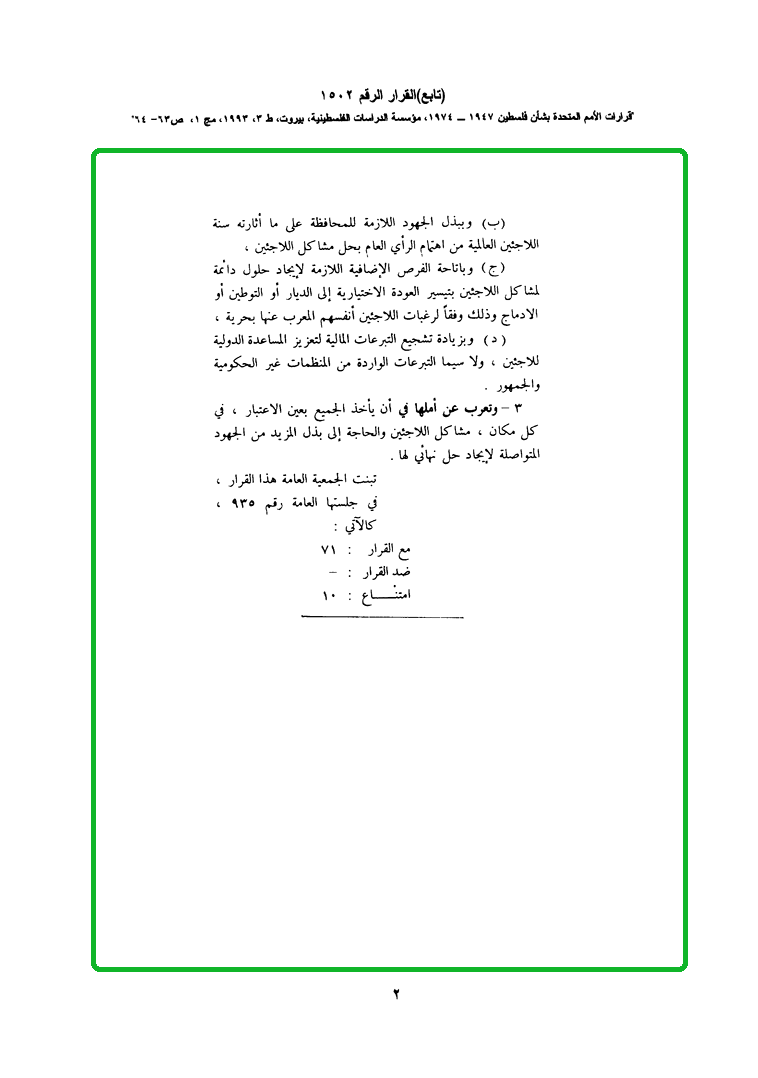 (تابع)القرار الرقم ١٥٠٢
"قرارات الأمم المتحدة بشأن فلسطين ١٩٤٧ ــ ١٩٧٤، مؤسسة الدراسات الفلسطينية، بيروت، ط ٣، ١٩٩٣، مج ١، ص٦٣- ٦٤"
(ب) وببذل الجهود اللازمة للمحافظة على ما أثارته سنة
اللاجئين العالمية من اهتمام الرأي العام بحل مشاكل اللاجئين ،
(ج) وباتاحة الفرص الإضافية اللازمة لإيجاد حلول دائمة
لمشاكل اللاجئين بتيسير العودة الاختيارية إلى الديار أو التوطين أو
الادماج وذلك وفقاً لرغبات اللاجئين أنفسهم المعرب عنها بحرية ،
(د) وبزيادة تشجيع التبرعات المالية لتعزيز المساعدة الدولية
للاجئين ، ولا سيما التبرعات الواردة من المنظمات غير الحكومية
والجمهور .
٣ – وتعرب عن أملها في أن يأخذ الجميع بعين الاعتبار ، في
كل مكان ، مشاكل اللاجئين والحاجة إلى بذل المزيد من الجهود
المتواصلة لإيجاد حل نهائي لها .
تبنت الجمعية العامة هذا القرار ،
في جلستها العامة رقم ٩٣٥ ،
كالآتي :
مع القرار : ٧١
ضد القرار : –
امتنـــــاع : ١٠
٢